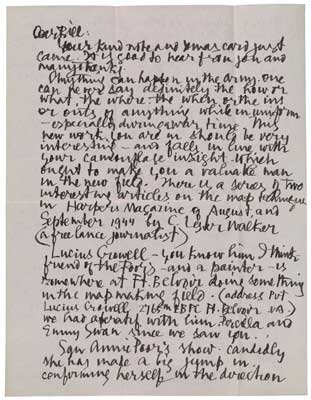 Dear Bill:
Your kind note and Xmas card just
came. It is good to hear from you and
many thanks
Anything can happen in the army. one
can never say definitely the how or
what, the where, the when, or the ins
or outs of anything while in uniform
- especially during war time. This
new work you are in should be very
interesting - and falls in line with
your camouflage insight - which
ought to make you a valuable man
in the new field. There is a series of two
interesting articles on the map technique
in Harpers Magazine of August and
September 1944 by C. Lester Walker
(a freelance journalist)
Lucius Crowell - you know him I think
friend of the Poor's - and a painter - is
somewhere at Ft. Belvoir doing something
in the map making field. (address Pvt
Lucius Crowell 2765th EBPC Ft. Belvoir Va.)
we had a party with him, Porcella and
Emmy Swan since we saw you.
Saw Annie Poor's show. candidly
she has made a big jump in
confirming herself in the direction